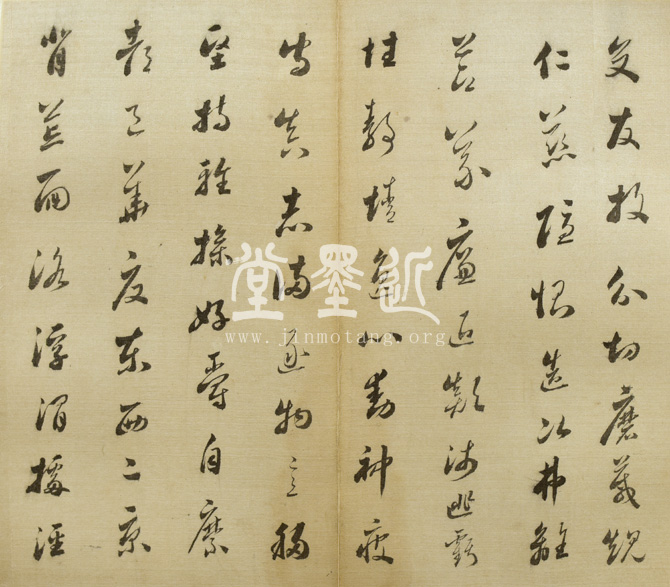 交友投分切磨箴規
仁慈隱惻造次弗離
節義廉退顛沛匪虧
性靜情逸心動神疲
守真志滿逐物意移
堅持雅操好爵自縻
都邑華夏東西二京
背芒面洛浮渭據涇
近墨堂
www.jinmotang.org